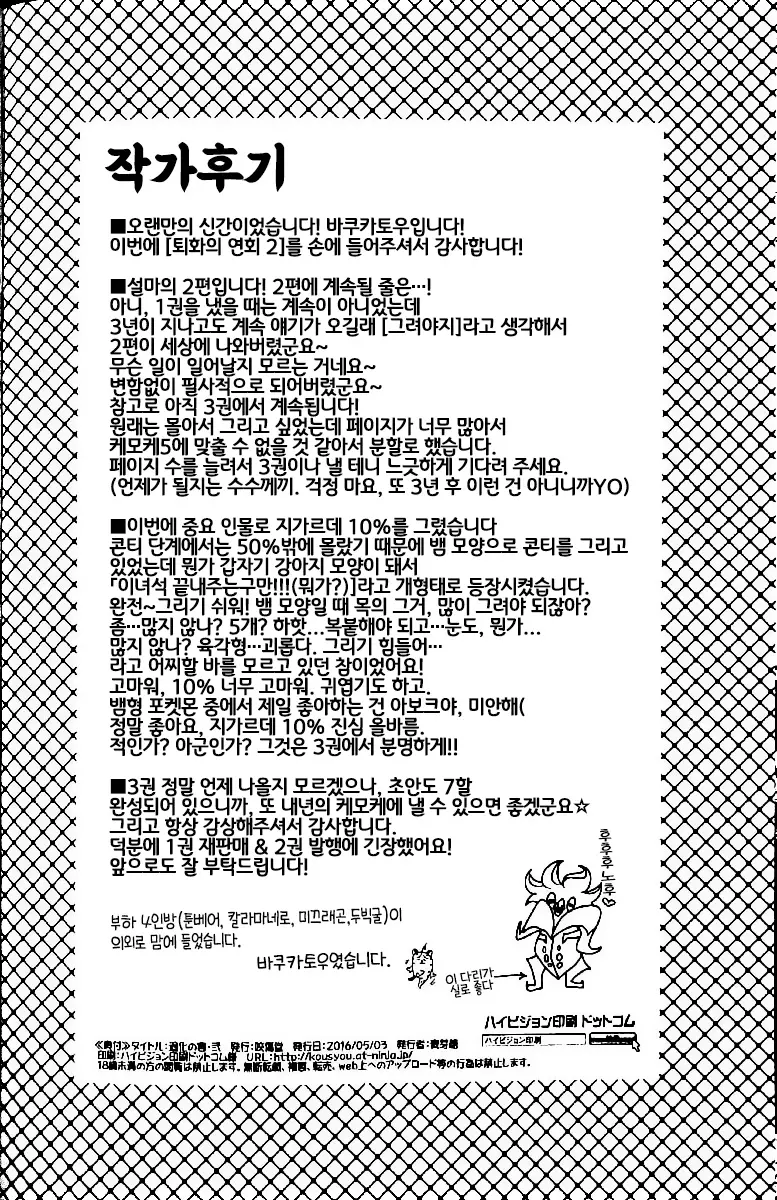 작가후기
■오랜만의 신간이었습니다! 바쿠카토우입니다!
이번에 [퇴화의 연회 2]를 손에 들어주셔서 감사합니다!
■설마의 2편입니다! 2편에 계속될 줄은…!
아니, 1권을 냈을 때는 계속이 아니었는데
3년이 지나고도 계속 얘기가 오길래 [그려야지]라고 생각해서
2편이 세상에 나와버렸군요~
무슨 일이 일어날지 모르는 거네요~
변함없이 필사적으로 되어버렸군요~
참고로 아직 3권에서 계속됩니다!
원래는 몰아서 그리고 싶었는데 페이지가 너무 많아서
케모케5에 맞출 수 없을 것 같아서 분할로 했습니다.
페이지 수를 늘려서 3권이나 낼 테니 느긋하게 기다려 주세요.
(언제가 될지는 수수께끼. 걱정 마요, 또 3년 후 이런 건 아니니까YO)
■이번에 중요 인물로 지가르데 10%를 그렸습니다
콘티 단계에서는 50%밖에 몰랐기 때문에 뱀 모양으로 콘티를 그리고
있었는데 뭔가 갑자기 강아지 모양이 돼서
「이녀석 끝내주는구만!!!(뭐가?)]라고 개형태로 등장시켰습니다.
완전~그리기 쉬워! 뱀 모양일 때 목의 그거, 많이 그려야 되잖아?
좀…많지 않나? 5개? 하핫...복붙해야 되고…눈도, 뭔가...
많지 않나? 육각형…괴롭다. 그리기 힘들어…
라고 어찌할 바를 모르고 있던 참이었어요!
고마워, 10% 너무 고마워. 귀엽기도 하고.
뱀형 포켓몬 중에서 제일 좋아하는 건 아보크야, 미안해(
정말 좋아요, 지가르데 10% 진심 올바름.
적인가? 아군인가? 그것은 3권에서 분명하게!!
■3권 정말 언제 나올지 모르겠으나, 초안도 7할
완성되어 있으니까, 또 내년의 케모케에 낼 수 있으면 좋겠군요☆
그리고 항상 감상해주셔서 감사합니다.
덕분에 1권 재판매 & 2권 발행에 긴장했어요!
앞으로도 잘 부탁드립니다!
후후후 노후♡
부하 4인방(툰베어, 칼라마네로, 미끄래곤,두빅굴)이
의외로 맘에 들었습니다.
바쿠카토우였습니다.
이 다리가
실로 좋다
ハイビジョン印刷 ドットコム
ハイビジョン印刷
≪奥付≫タイトル:退化の宴・弐 発行: 発行日:2016/05/03 発行者:
印刷:ハイビジョン印刷ドットコム様 URL:http://kousyou.at-ninja.jp/
18歳未満の方の閲覧は禁止します。無断転載、複製、転売、web上へのアップロード等の行為は禁止します。